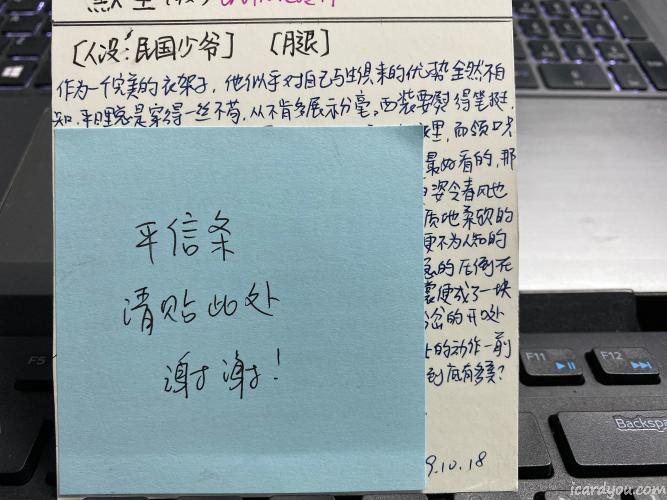 [人设:民国少爷] [月退]
作为一个完美的衣架子，他似乎对自己与生俱来的优势全然不自
知，平日里总是穿得一丝不苟，从不肯多展示分毫。西装要熨得笔挺，
里，而领口
最好看的，那
姿令春风也
质地柔软的
便不为人知的
的压倒在
便成了一块
的开口处
上的动作一前
到底有多美?
平信条
请贴此处
谢谢!
9.10.18
F5
F11
F12
Backspa
icardyou.com